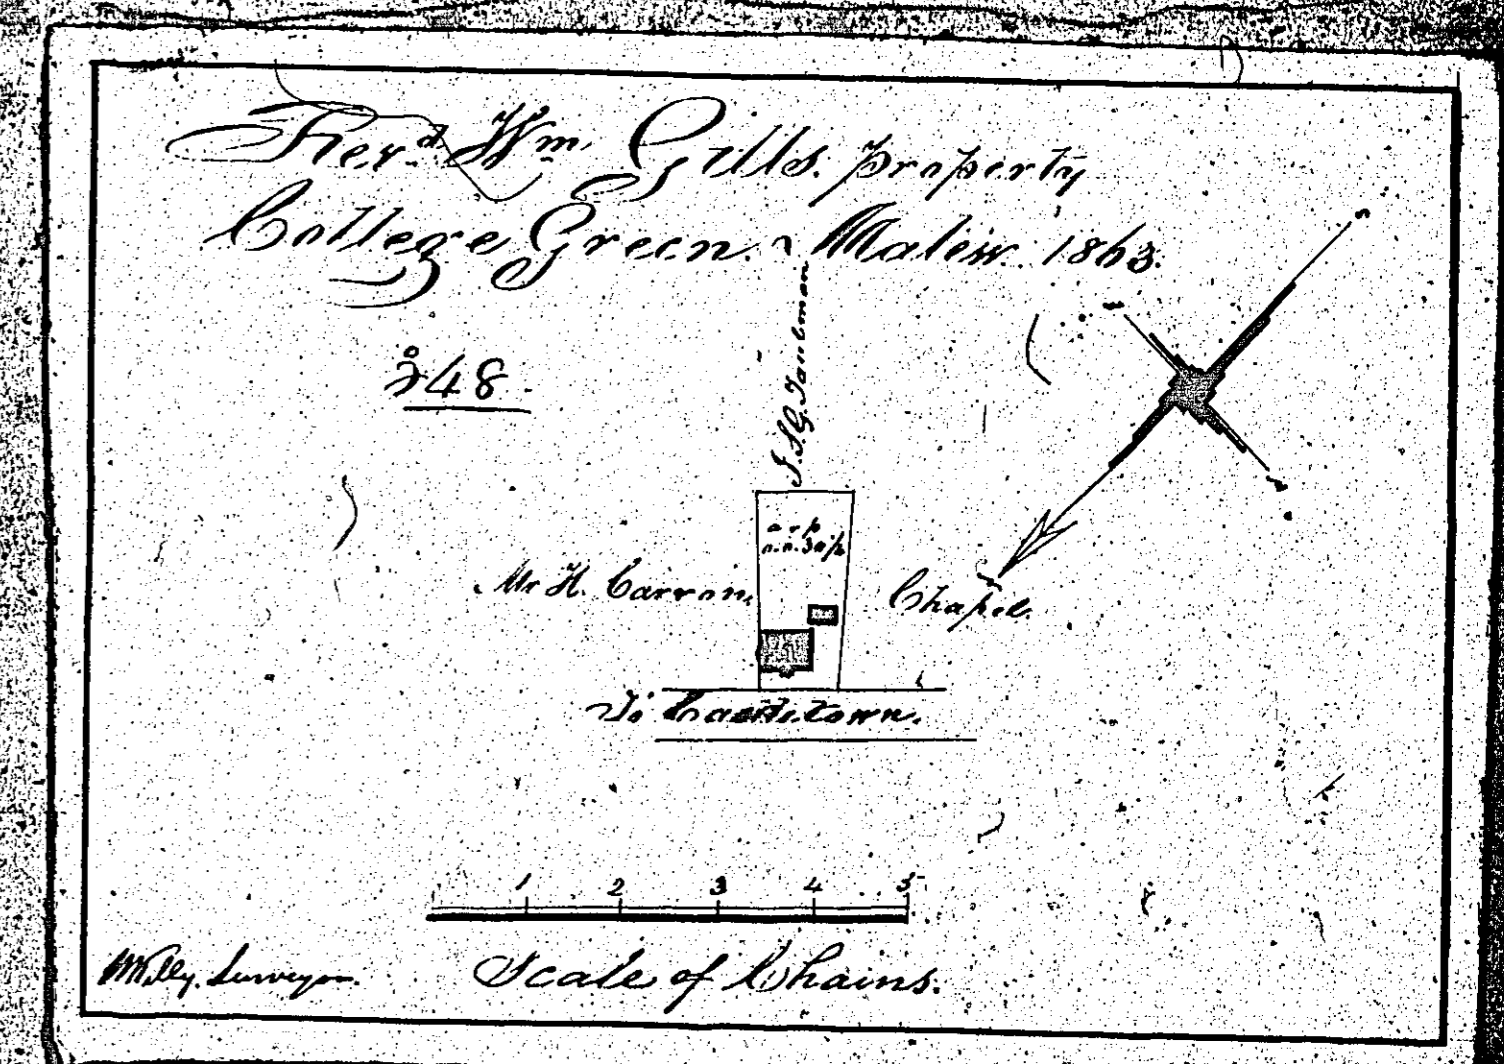 Revd Wm Gills. Property
College Green. Malew. 1863.
248
J.S.G. Taubman
a r p
0.0.30 1/2
Mr H. Carran.
Chapel.
To Castletown.
1 2 3 4 5
Scale of Chains.
Surveyor.